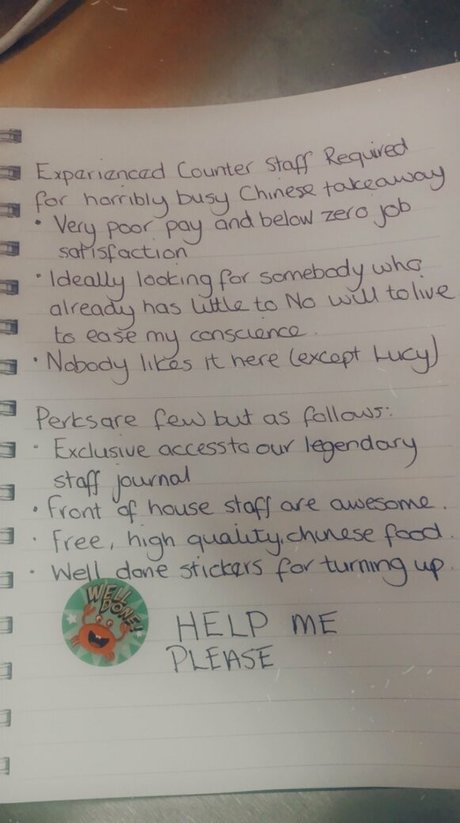 Experienced Counter Staff Required
for horribly busy Chinese takeaway
• Very poor pay and below zero job
satisfaction
• Ideally looking for somebody who
already has little to No will to live
to ease my conscience.
• Nobody likes it here (except Lucy)
Perks are few but as follows:
• Exclusive access to our legendary
staff journal
• Front of house staff are awesome.
• Free, high quality, chinese food.
• Well done stickers for turning up.
WELL
DONE!
HELP ME
PLEASE